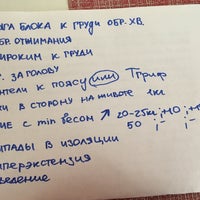 ЯГА БЛОКА К ГРУДИ ОБР. ХВ.
ОБР. ОТЖИМАНИЯ
ШИРОКИМ К ГРУДИ
ЗА ГОЛОВУ
ГАНТЕЛИ К ПОЯСУ ИЛИ Т ГРИФ
КИ В СТОРОНУ НА ЖИВОТЕ 1КГ.
НИЕ С min ВЕСОМ ↗ 20-25КГ +10 +10
50
ПАДЫ В ИЗОЛЯЦИИ
ИПЕРЭКСТЕНЗИЯ
ВЕДЕНИЕ